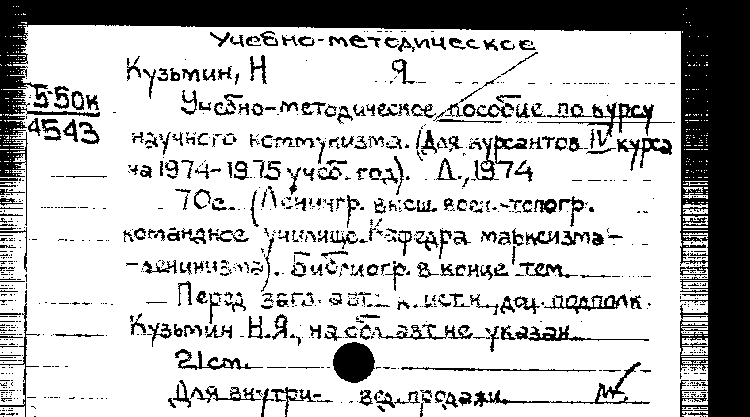 Учебно-методическое
Кузьмин, Н Я
550к
4543
Учебно-методическое пособие по курсу
научного коммунизма. (Для курсантов IV курса
на 1974-1975 учеб. год). Л., 1974
70с. (Ленингр. высш. воен.-топогр.
командное училище. Кафедра марксизма-
-ленинизма). Библиогр. в конце тем.
Перед загл. авт.: к. ист. н., доц. подполк.
Кузьмин Н.Я., на обл. авт. не указан.
21см.
Для внутри- вед. продажи.